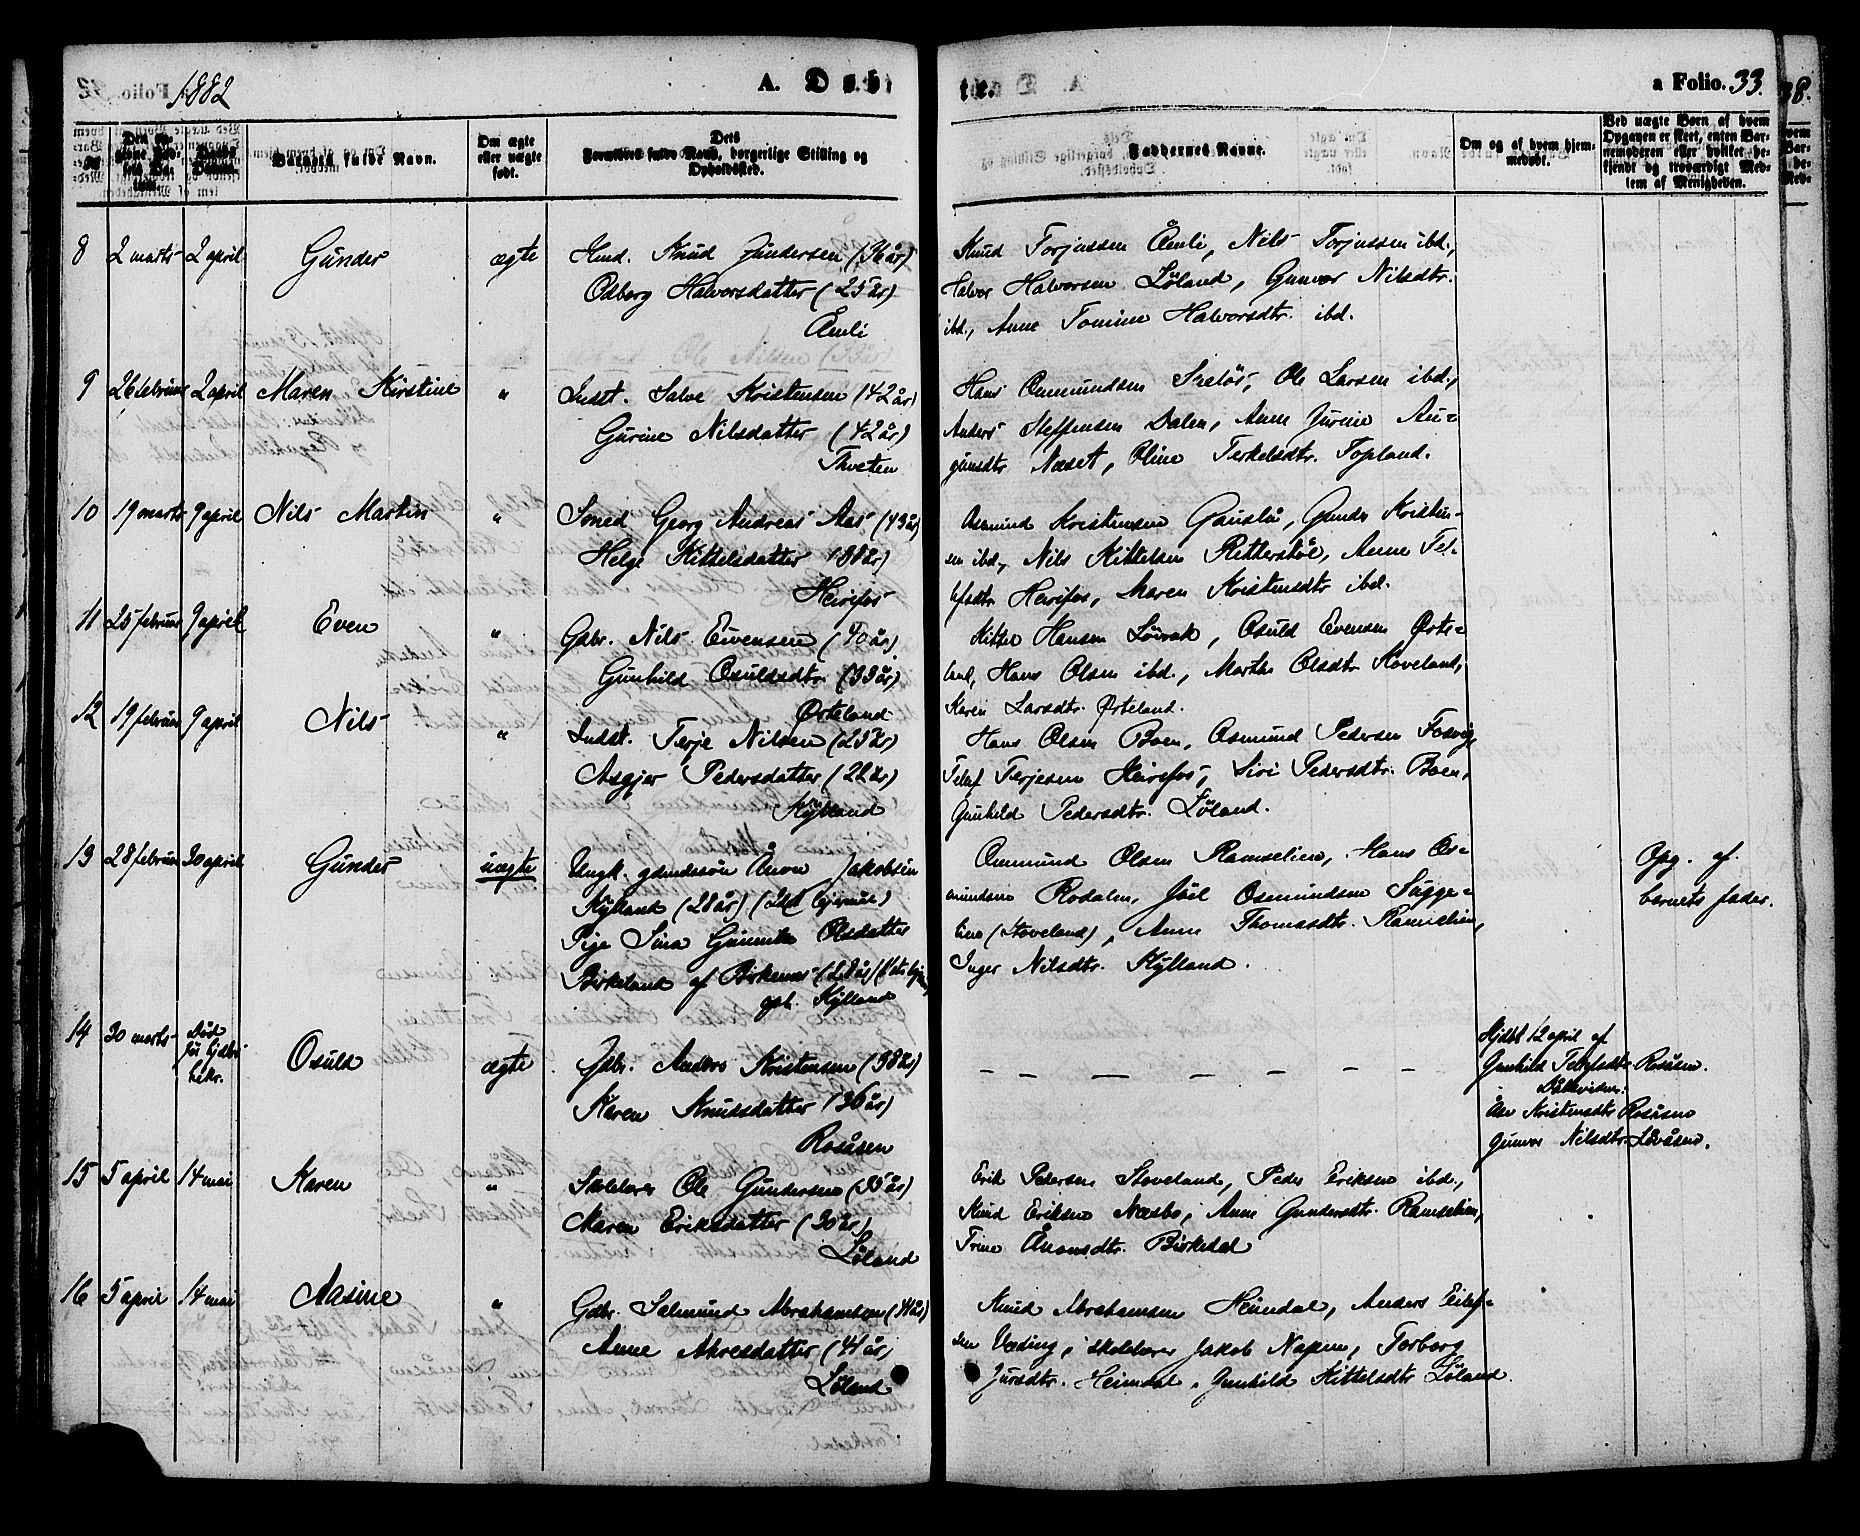 1882
A. Døb
te.
a Folio. 33.
Barnets fulde Navn.
Om ægte eller uægte født.
Forældres fulde Navn, borgerlige Stilling og Opholdssted.
Faddernes Navne.
Om og af hvem hjemmedøbt.
Ved uægte Børn af hvem Opgaven er skeet, enten Barnemoderen eller hvilket bekjendt og troværdigt Medlem af Menigheden.
8 2 marts 2 april Gunder ægte Knud Gundersen (36 år)
Odberg Halvorsdatter (25 år)
Åmli
Knud Torjussen Åmli, Nils Torjussen ibd.,
Halvor Halvorsen Løland, Gunvor Nilsdtr.
ibd., Anne Tomine Halvorsdtr. ibd.
9 26 februar 2 april Maren Kirstine " Indst. Salve Kristensen (42 år)
Gurine Nilsdatter (42 år)
Thveten
Hans Ommundsen, Ole Larsen ibd.,
Anders Steffensen Dalen, Anne Jurine Au=
gunsdtr. Næset, Oline Terkelsdtr. Topland.
10 19 marts 9 april Nils Martin " Smed Georg Andreas Aas (43 år)
Helge Kittelsdatter
Heirefos
Osmund Kristensen, Gunder Kristen-
sen ibd., Nils Kittelsen, Anne Tel-
lefsdtr Heirefos, Maren Kristensdtr ibd.
11 25 februar 9 april Even " Gdbr. Nils Evensen (40 år)
Gunhild Osuldsdtr. (33 år)
Ørteland
Hansen Løvrak, Osuld Evensen Ørte-
land, Hans Olsen ibd., Marthe Olsdtr. Stoveland,
Karen Larsdtr. Ørteland.
12 19 februar 9 april Nils " Indst. Terje Nilsen
Asgjer Pedersdatter (22 år)
Kylland
Hans Olsen Boen, Osmund Pedersen Fosvig,
Telef Terjesen Heirefos, Siri Pedersdtr. Boen,
Gunhild Pedersdtr. Løland.
13 28 februar 30 april Gunder uægte Ungk. Jakobsen
Kylland (28 år)
Pige Sina Olsdatter
Birkeland af Birkenes (28 år)
opl. Kylland
Ommund Olsen Ramselien, Hans Os-
mundsen Rodalen, Osmundsen Sugge-
lien (Stoveland), Anne Thomasdtr. Ramselien,
Inger Nilsdtr. Kylland.
Opg. af
barnets fader.
14 30 marts Død
før
bekr.
Osuld ægte Gdbr. Anders Kristensen (38 år)
Karen Knudsdatter (36 år)
Rosåsen
— — — — — — — —
Hjdbt 12 april af
Gunhild Tellefsdtr Rosåsen.
Dåbsvidner:
Åse Kristensdtr Rosåsen
Gunvor Nilsdtr. Løvåsen.
15 5 april 14 mai Karen " Skolelærer Ole Gundersen (35 år)
Maren Eriksdatter (30 år)
Løland
Erik Pedersen Stoveland, Peder Eriksen ibd.,
Knud Eriksen Næsbø, Anne Gundersdtr. Ramselien,
Trine Ånonsdtr. Birkedal
16 5 april 14 mai Aasine " Gdbr. Salmund Abrahamsen
Anne Akresdatter (44 år)
Løland
Knud Abrahamsen Heimdal, Anders Eilef-
sen Væding, skolelærer Jakob Napen, Torborg
Jursdtr. Heimdal, Gunhild Kittelsdtr Løland.